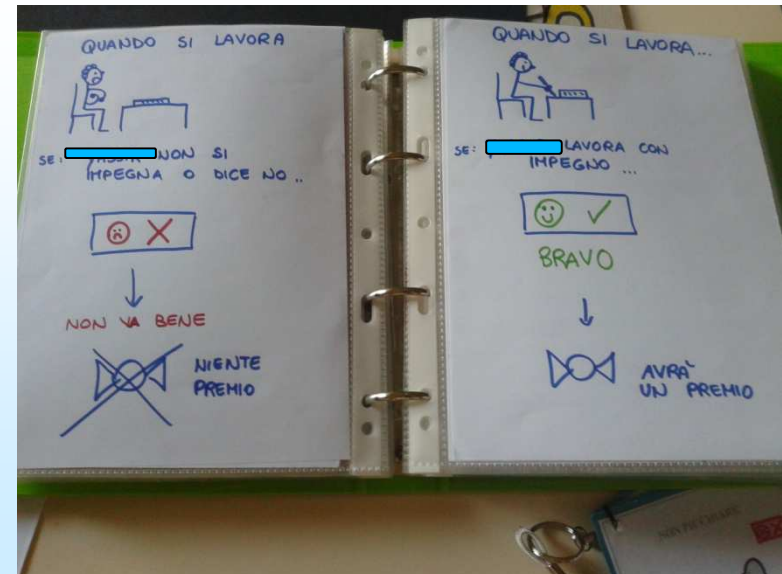 QUANDO SI LAVORA
SE: NON SI
IMPEGNA O DICE NO..
NON VA BENE
NIENTE
PREMIO
QUANDO SI LAVORA...
SE: LAVORA CON
IMPEGNO...
BRAVO
AVRÀ
UN PREMIO